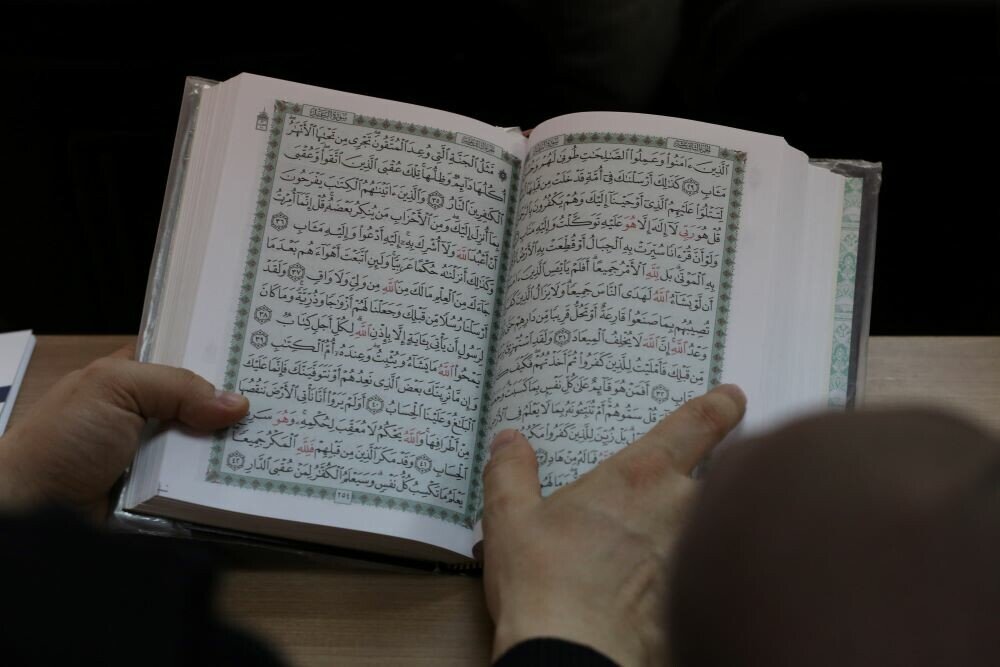 ٱلَّذِينَ ءَامَنُوا۟ وَعَمِلُوا۟ ٱلصَّـٰلِحَـٰتِ طُوبَىٰ لَهُمْ
مَـَٔابٍ ٢٩ كَذَٰلِكَ أَرْسَلْنَـٰكَ فِىٓ أُمَّةٍ قَدْ خَلَتْ مِن قَبْلِهَآ
لِّتَتْلُوَا۟ عَلَيْهِمُ ٱلَّذِىٓ أَوْحَيْنَآ إِلَيْكَ وَهُمْ يَكْفُرُونَ
قُلْ هُوَ رَبِّى لَآ إِلَـٰهَ إِلَّا هُوَ عَلَيْهِ تَوَكَّلْتُ وَإِلَيْهِ مَتَابِ
وَلَوْ أَنَّ قُرْءَانًا سُيِّرَتْ بِهِ ٱلْجِبَالُ أَوْ قُطِّعَتْ بِهِ ٱلْأَرْضُ
بِهِ ٱلْمَوْتَىٰ بَل لِّلَّهِ ٱلْأَمْرُ جَمِيعًا أَفَلَمْ يَا۟يْـَٔسِ ٱلَّذِينَ
أَن لَّوْ يَشَآءُ ٱللَّهُ لَهَدَى ٱلنَّاسَ جَمِيعًا وَلَا يَزَالُ ٱلَّذِينَ
تُصِيبُهُم بِمَا صَنَعُوا۟ قَارِعَةٌ أَوْ تَحُلُّ قَرِيبًا مِّن دَارِهِمْ
وَعْدُ ٱللَّهِ إِنَّ ٱللَّهَ لَا يُخْلِفُ ٱلْمِيعَادَ ٣١ وَلَقَدِ
مِّن قَبْلِكَ فَأَمْلَيْتُ لِلَّذِينَ كَفَرُوا۟ ثُمَّ أَخَذْتُهُمْ فَكَيْفَ
٣٢ أَفَمَنْ هُوَ قَآئِمٌ عَلَىٰ كُلِّ نَفْسٍۭ بِمَا كَسَبَتْ
قُلْ سَمُّوهُمْ أَمْ تُنَبِّـُٔونَهُۥ بِمَا لَا يَعْلَمُ فِى ٱلْأَرْضِ
بَلْ زُيِّنَ لِلَّذِينَ كَفَرُوا۟ مَكْرُهُمْ
فَمَا لَهُۥ مِنْ هَادٍ
سُورَةُ الرَّعْدِ
مَّثَلُ ٱلْجَنَّةِ ٱلَّتِى وُعِدَ ٱلْمُتَّقُونَ تَجْرِى مِن تَحْتِهَا ٱلْأَنْهَـٰرُ
أُكُلُهَا دَآئِمٌ وَظِلُّهَا تِلْكَ عُقْبَى ٱلَّذِينَ ٱتَّقَوا۟ وَّعُقْبَى
ٱلْكَـٰفِرِينَ ٱلنَّارُ ٣٥ وَٱلَّذِينَ ءَاتَيْنَـٰهُمُ ٱلْكِتَـٰبَ يَفْرَحُونَ
بِمَآ أُنزِلَ إِلَيْكَ وَمِنَ ٱلْأَحْزَابِ مَن يُنكِرُ بَعْضَهُۥ قُلْ إِنَّمَآ أُمِرْتُ
أَنْ أَعْبُدَ ٱللَّهَ وَلَآ أُشْرِكَ بِهِۦٓ إِلَيْهِ أَدْعُوا۟ وَإِلَيْهِ مَـَٔابِ ٣٦
وَكَذَٰلِكَ أَنزَلْنَـٰهُ حُكْمًا عَرَبِيًّا وَلَئِنِ ٱتَّبَعْتَ أَهْوَآءَهُم بَعْدَمَا
جَآءَكَ مِنَ ٱلْعِلْمِ مَا لَكَ مِنَ ٱللَّهِ مِن وَلِىٍّ وَلَا وَاقٍ ٣٧ وَلَقَدْ
أَرْسَلْنَا رُسُلًا مِّن قَبْلِكَ وَجَعَلْنَا لَهُمْ أَزْوَٰجًا وَذُرِّيَّةً وَمَا كَانَ
لِرَسُولٍ أَن يَأْتِىَ بِـَٔايَةٍ إِلَّا بِإِذْنِ ٱللَّهِ لِكُلِّ أَجَلٍ كِتَابٌ ٣٨
يَمْحُوا۟ ٱللَّهُ مَا يَشَآءُ وَيُثْبِتُ وَعِندَهُۥٓ أُمُّ ٱلْكِتَـٰبِ ٣٩
وَإِن مَّا نُرِيَنَّكَ بَعْضَ ٱلَّذِى نَعِدُهُمْ أَوْ نَتَوَفَّيَنَّكَ فَإِنَّمَا عَلَيْكَ
ٱلْبَلَـٰغُ وَعَلَيْنَا ٱلْحِسَابُ ٤٠ أَوَلَمْ يَرَوْا۟ أَنَّا نَأْتِى ٱلْأَرْضَ نَنقُصُهَا
مِنْ أَطْرَافِهَا وَٱللَّهُ يَحْكُمُ لَا مُعَقِّبَ لِحُكْمِهِۦ وَهُوَ سَرِيعُ
ٱلْحِسَابِ ٤١ وَقَدْ مَكَرَ ٱلَّذِينَ مِن قَبْلِهِمْ فَلِلَّهِ ٱلْمَكْرُ جَمِيعًا
يَعْلَمُ مَا تَكْسِبُ كُلُّ نَفْسٍ وَسَيَعْلَمُ ٱلْكُفَّـٰرُ لِمَنْ عُقْبَى ٱلدَّارِ ٤٢
٢٥٤